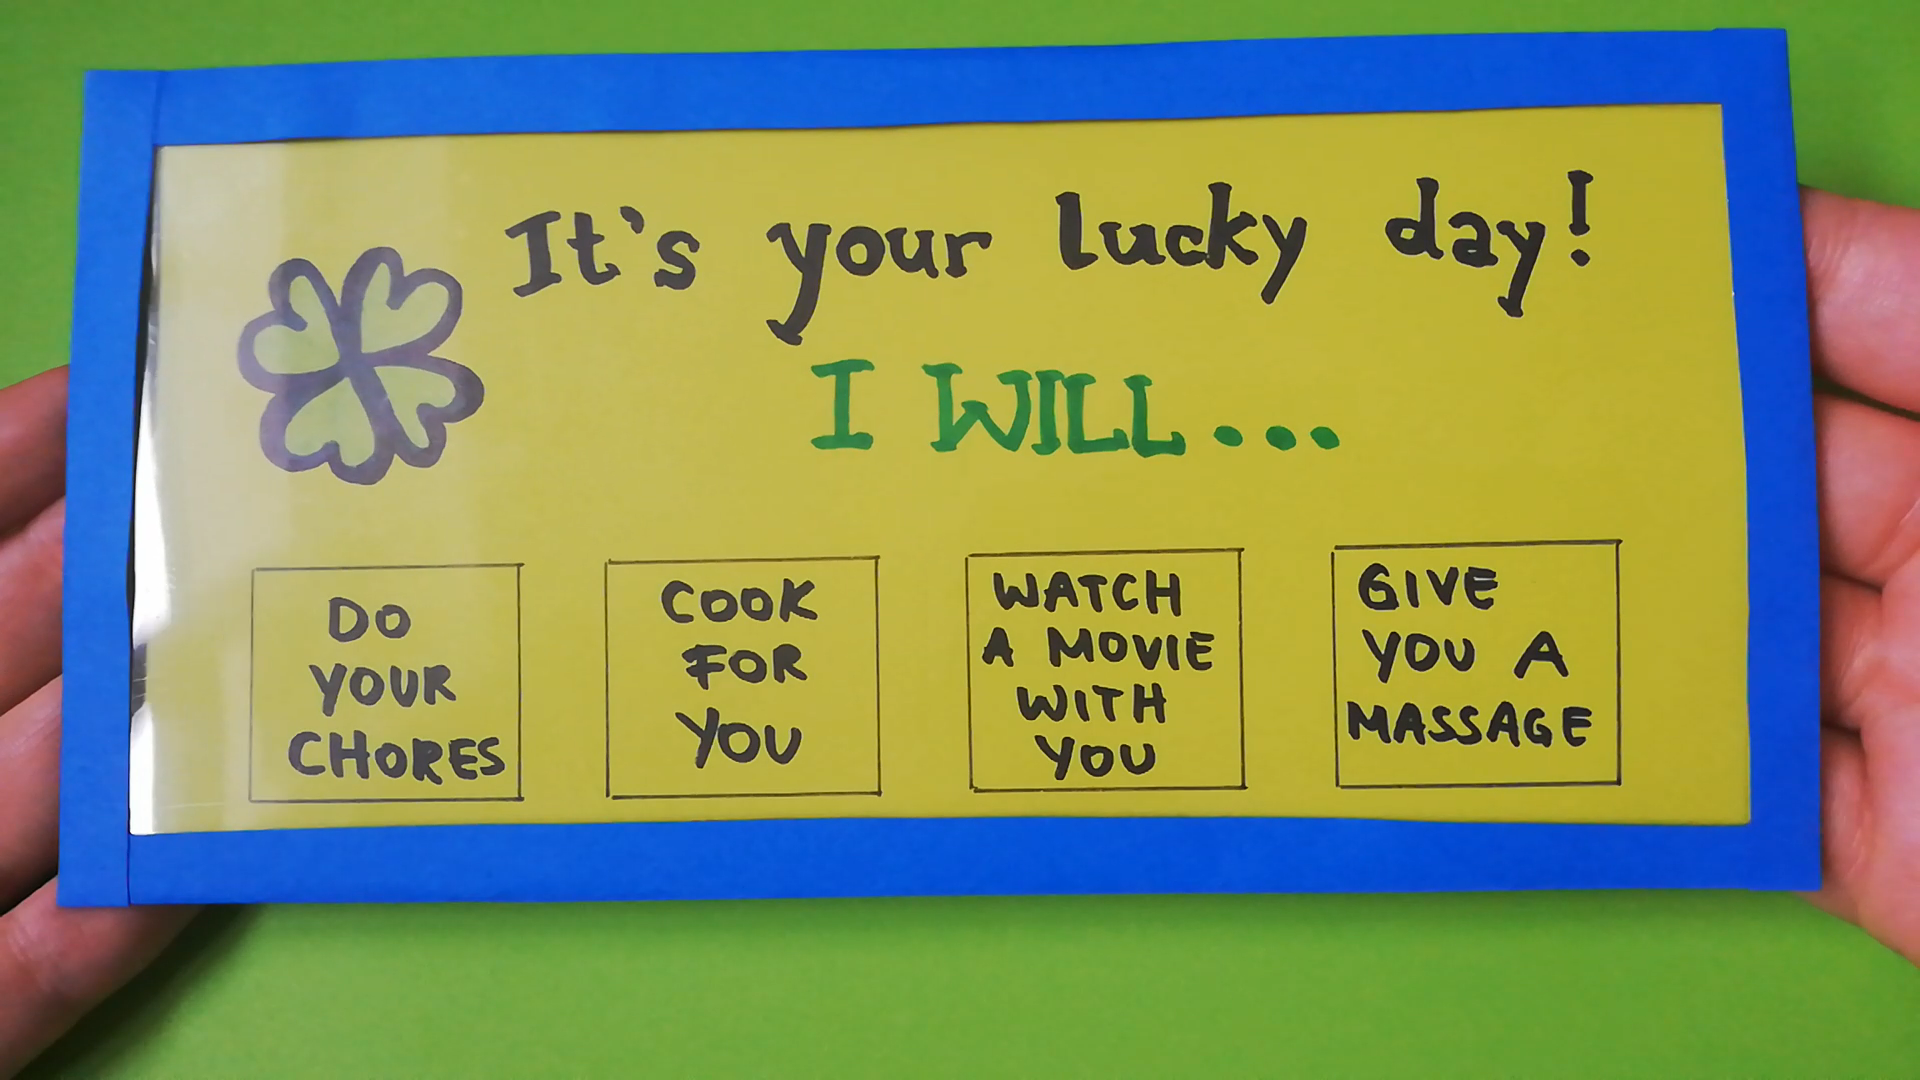 It's your lucky day!
I WILL...
DO
YOUR
CHORES
COOK
FOR
YOU
WATCH
A MOVIE
WITH
YOU
GIVE
YOU A
MASSAGE